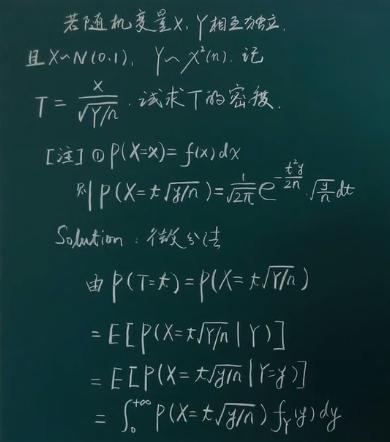 若随机变量X, Y相互独立.
且X~N(0,1), Y~χ²(n). 记
T = X/√(Y/n) . 试求T的密度.
[注] ① P(X=x) = f(x)dx
则 P(X=t√(y/n)) = 1/√(2π) e^(-t²y/2n) · √(y/n) dt
Solution: 微分法
由 P(T=t) = P(X=t√(Y/n))
= E[P(X=t√(Y/n) | Y)]
= E[P(X=t√(y/n) | Y=y)]
= ∫₀^(+∞) P(X=t√(y/n)) f_Y(y) dy